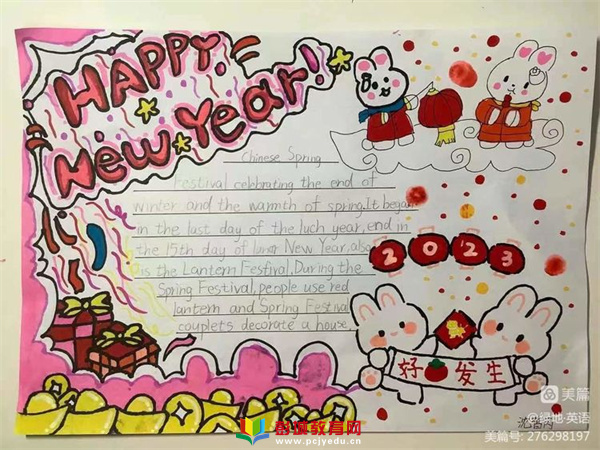 HAPPY
New Year!
Chinese Spring
Festival celebrating the end of
winter and the warmth of spring.It began
in the last day of the luch year, end in
the 15th day of lunar New Year, also
is the Lantern Festival.During the
Spring Festival, people use red
lantern and Spring Festival
couplets decorate a house.
2023
好 发生
美篇
@绿地·英语
美篇号: 276298197
彭城教育网
www.pcjyedu.cn